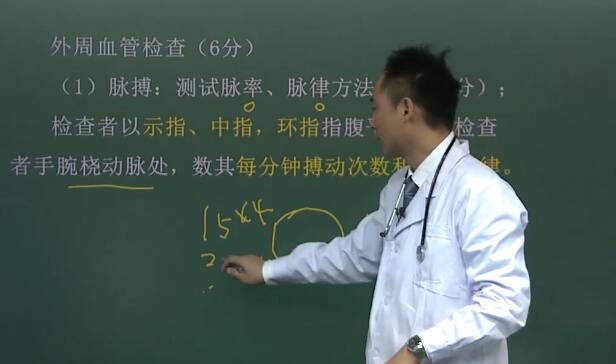 外周血管检查（6分）
（1）脉搏：测试脉率、脉律方法 分）；
检查者以示指、中指，环指指腹 检查
者手腕桡动脉处，数其每分钟搏动次数和 律。
15×4